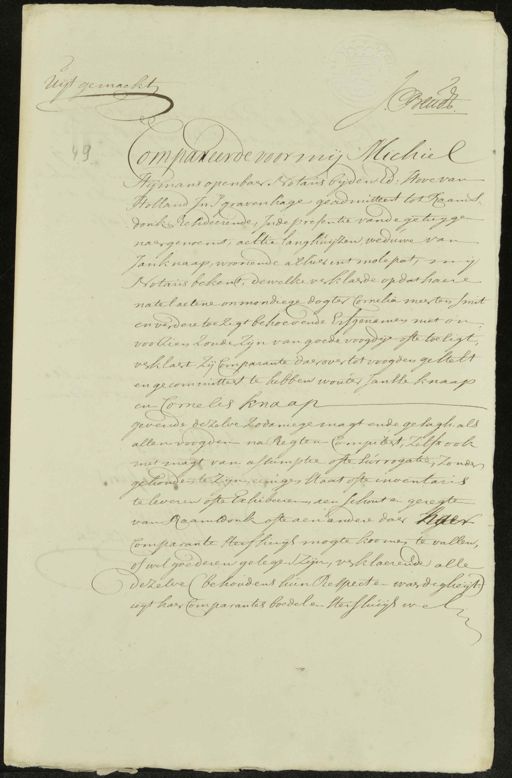 Uijt gemaackt
49
Compareerde voor mij Michiel
Hijmans openbaer Notaris bij den Ed: Hove van
Holland In s'gravenhage geadmitteert tot Raams
donk Resideerende, Inde presentie vande getuijge
naergenoemt, aeltie Langhuijsen, weduwe van
Jan knaap, wonende alhier int molepat, mij
Notaris bekent, dewelke verklaarde op dat haere
natelaetene onmondiege dogter Cornelia mersten, mit
en verdere toe Zegt behoevende Erfgenamen niet on
voorzien Zoude Zijn van goede voogdije ofte toeZigt,
verklaert Zij Comparante daer over tot voogden gestelt
en gecommitteert te hebben wouter Janße knaap
en Cornelis knaap
gevende dezelve Zodaniege magt ende gesagh als
allen voogden na Regten Competeert, Zelfs ook
met magt van assumptie ofte surrogatie, Zonder
gehouden te Zijn, eenigen Staat ofte inventaris
te leveren ofte Exhiberen, aen Schout en geregte
van Raamsdonk ofte aen andere daer haer
Comparante Sterfhuijs mogte koomen te vallen,
of wel goederen gelegen Zijn, verklaerende alle
dezelve (behoudens hun Respect en waerdigheijt)
uijt haer Comparantes boedel en Sterfhuijs wel